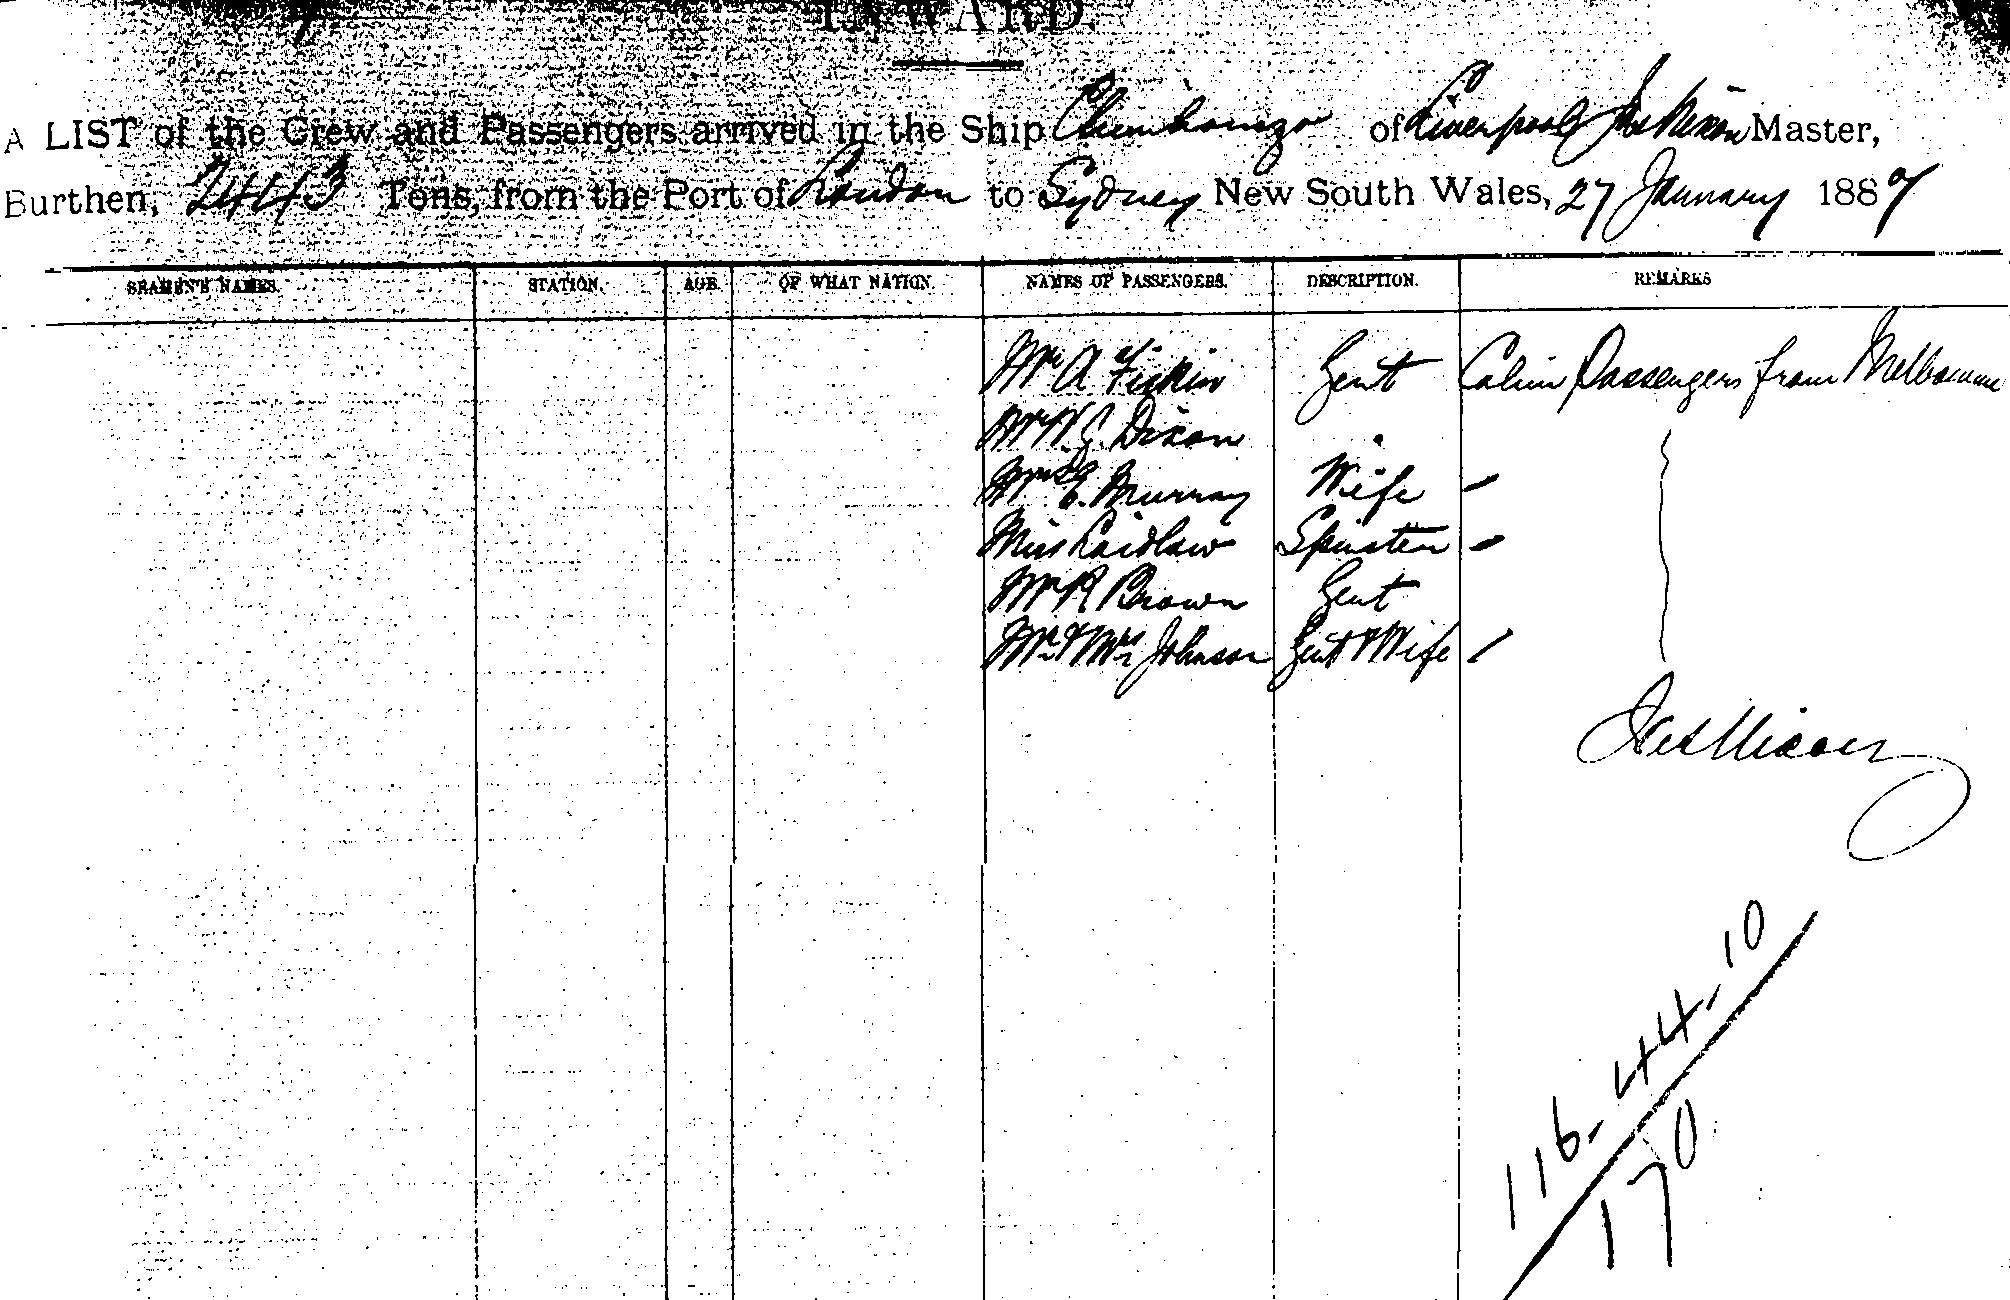 INWARD.
A LIST of the Crew and Passengers arrived in the Ship Chimborazo of Liverpool Jas Nixon Master,
Burthen, 2443 Tons, from the Port of London to Sydney New South Wales, 27 January 1887
SEAMEN'S NAMES. STATION. AGE. OF WHAT NATION. NAMES OF PASSENGERS. DESCRIPTION. REMARKS
Mr A Fiskin Gent Cabin Passengers from Melbourne
Mr W.G. Dixon "
Mrs E. Murray Wife
Miss Laidlaw Spinster
Mr R Brown Gent
Mr & Mrs Johnson Gent & Wife
Jas Nixon
116. 44. 10
170